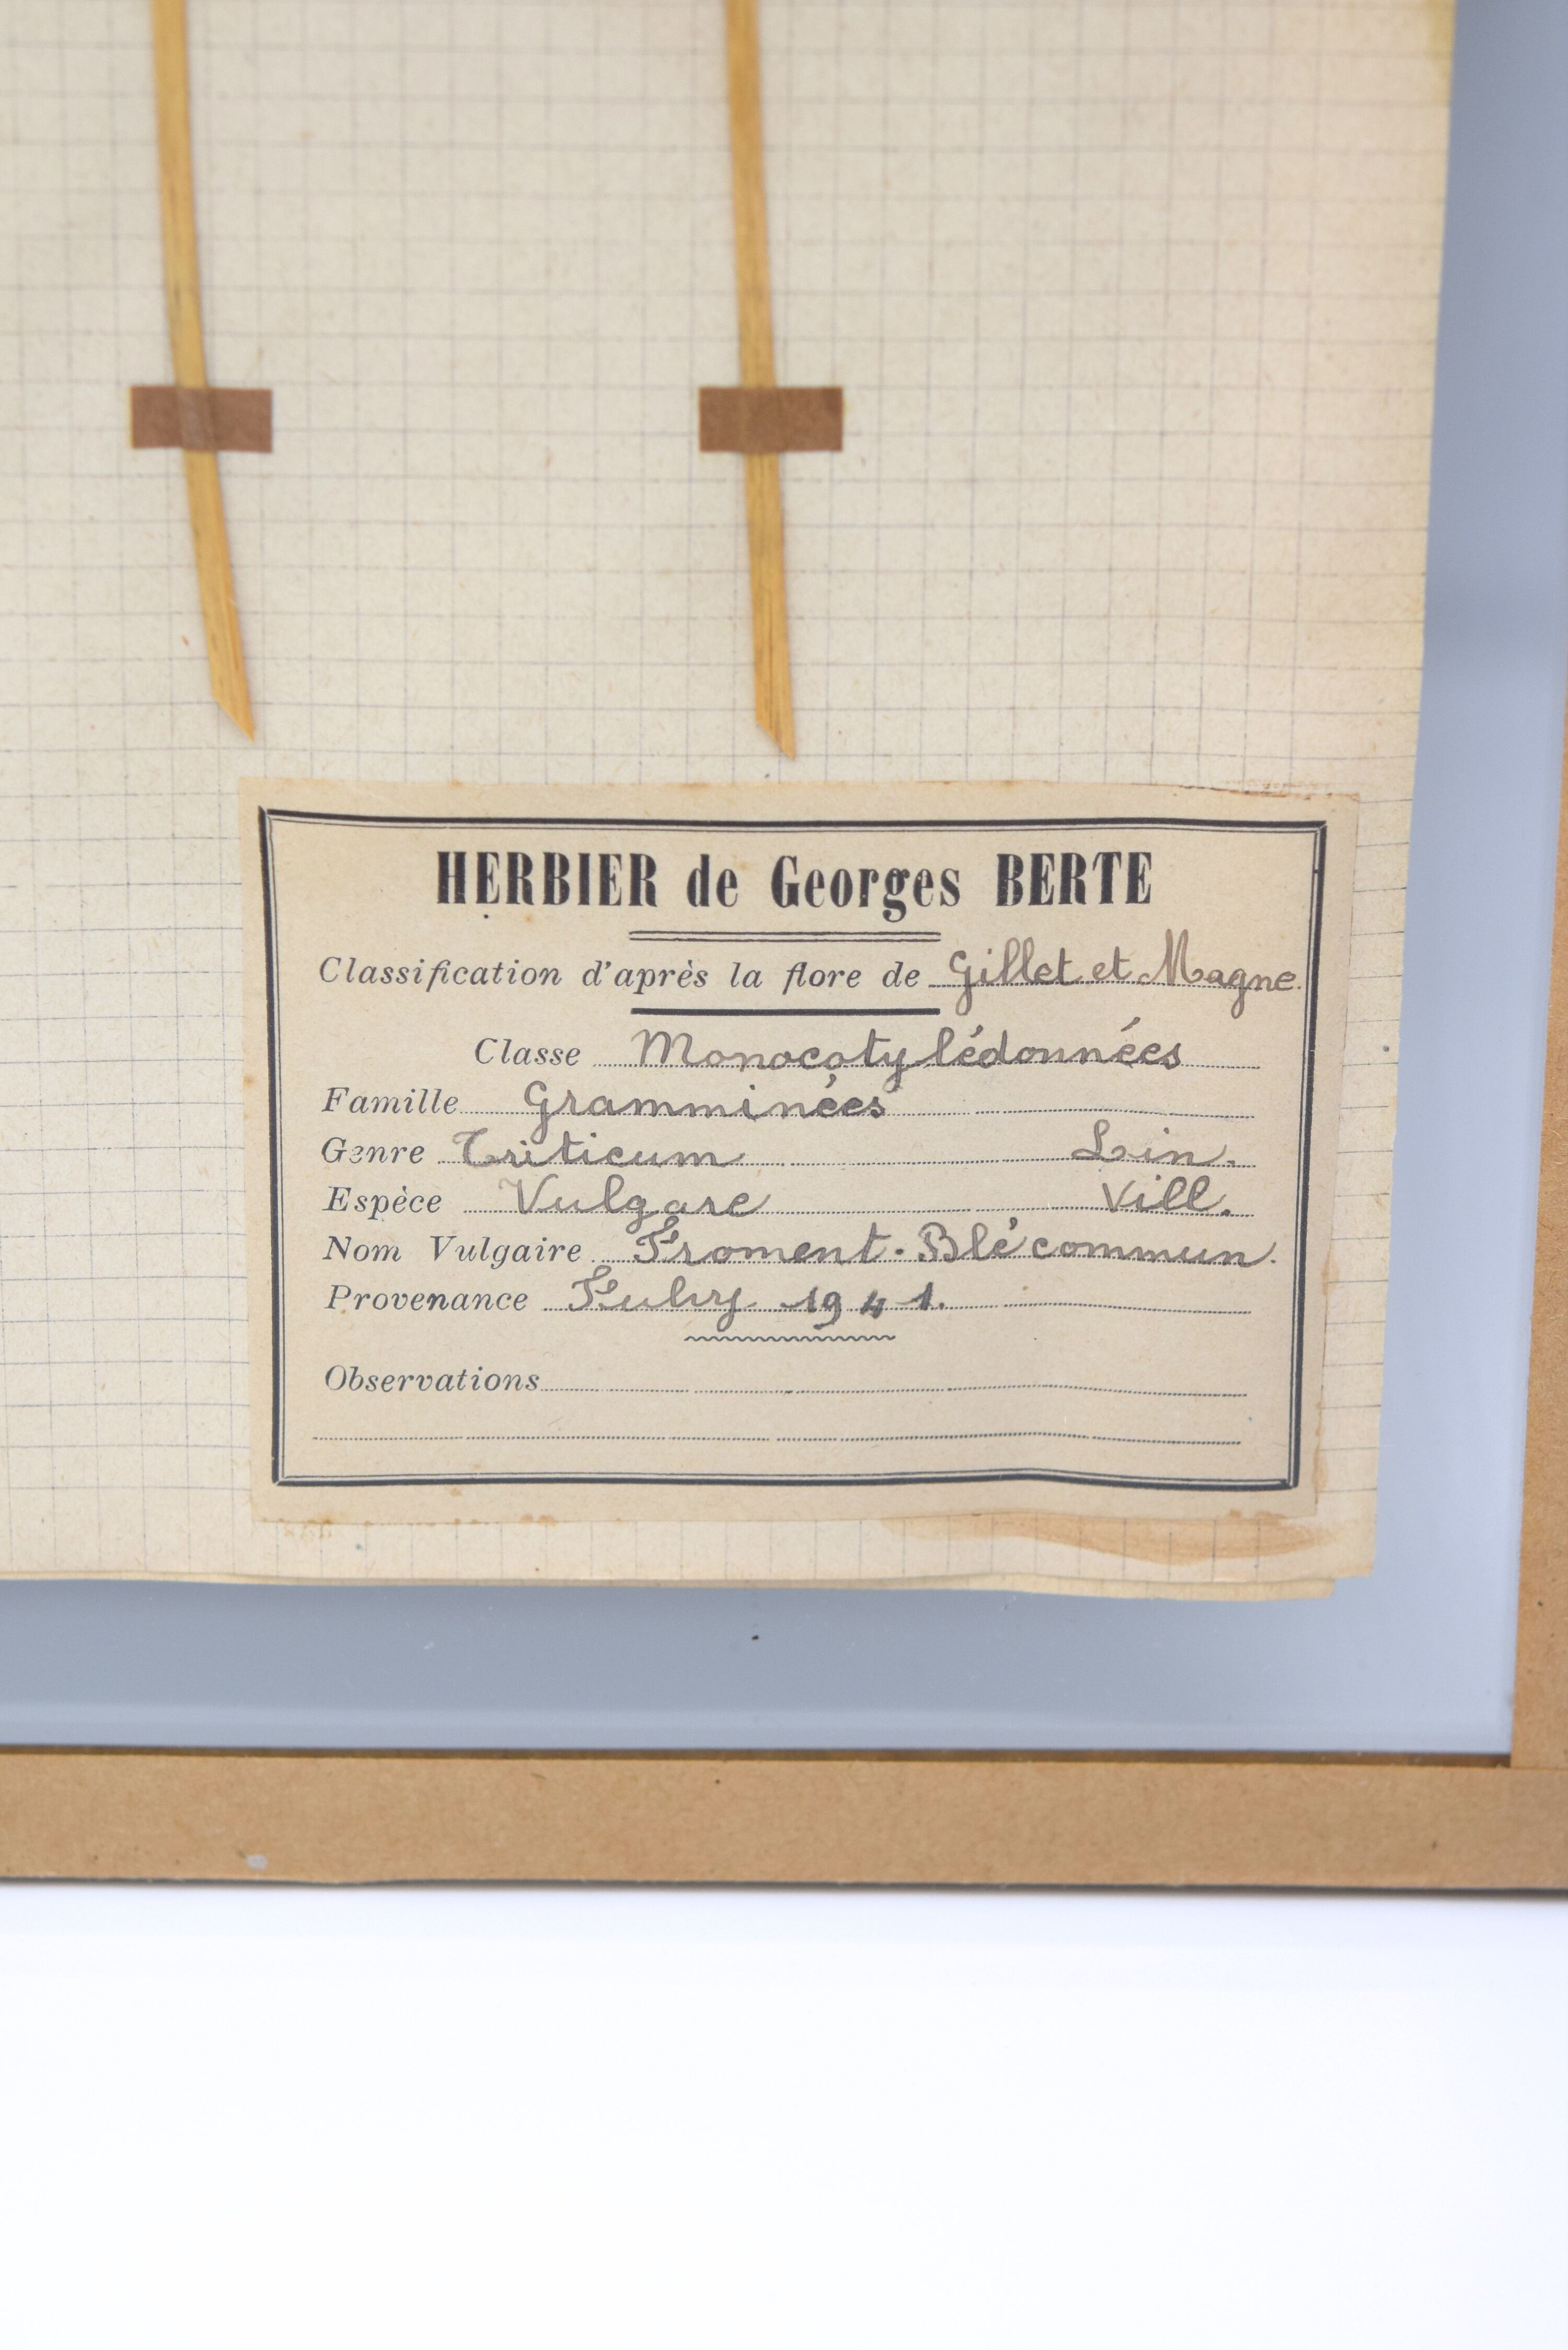 HERBIER de Georges BERTE
Classification d'après la flore de Gillet et Magne.
Classe Monocotylédonnées
Famille Gramminées
Genre Triticum Lin.
Espèce Vulgare Vill.
Nom Vulgaire Froment. Blé commun.
Provenance 1941.
Observations